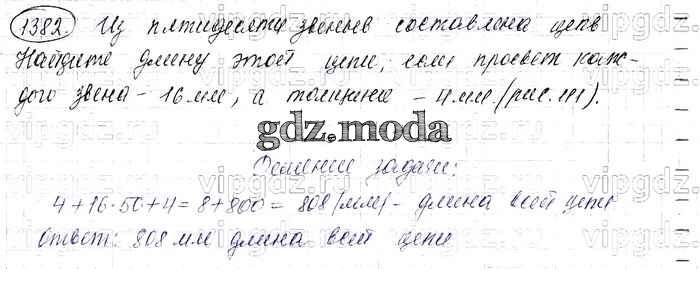 1382. Из пятидесяти звеньев составлена цепь
Найдите длину этой цепи, если просвет каж-
дого звена - 16 мм, а толщина - 4 мм. (рис. 111).
gdz.moda
Решение задачи:
4+16·50+4=8+800=808 (мм) - длина всей цепи
Ответ: 808 мм длина всей цепи